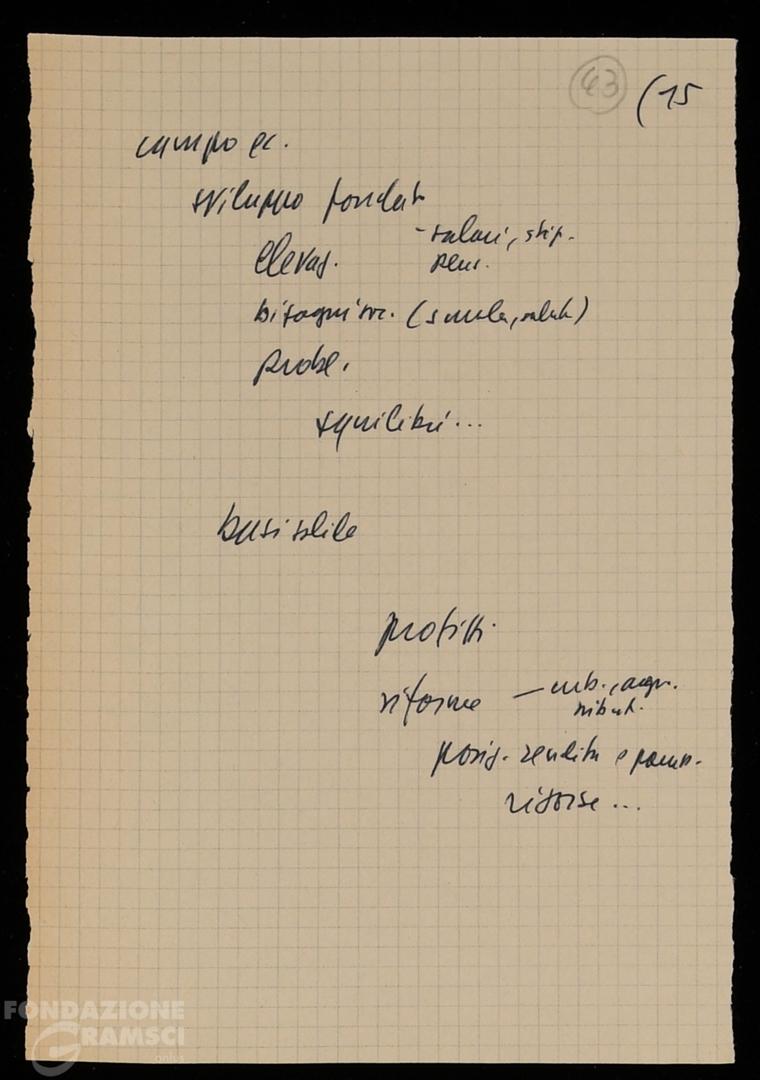 43 (15
campo ec.
sviluppo fondato
elevaz. - salari, stip.
pens.
bisogni soc. (scuola, salute)
probl.
squilibri...
basi solide
profitti
riforme — urb., agr.
tribut.
posiz. rendita e param.
risorse...
FONDAZIONE
GRAMSCI
onlus